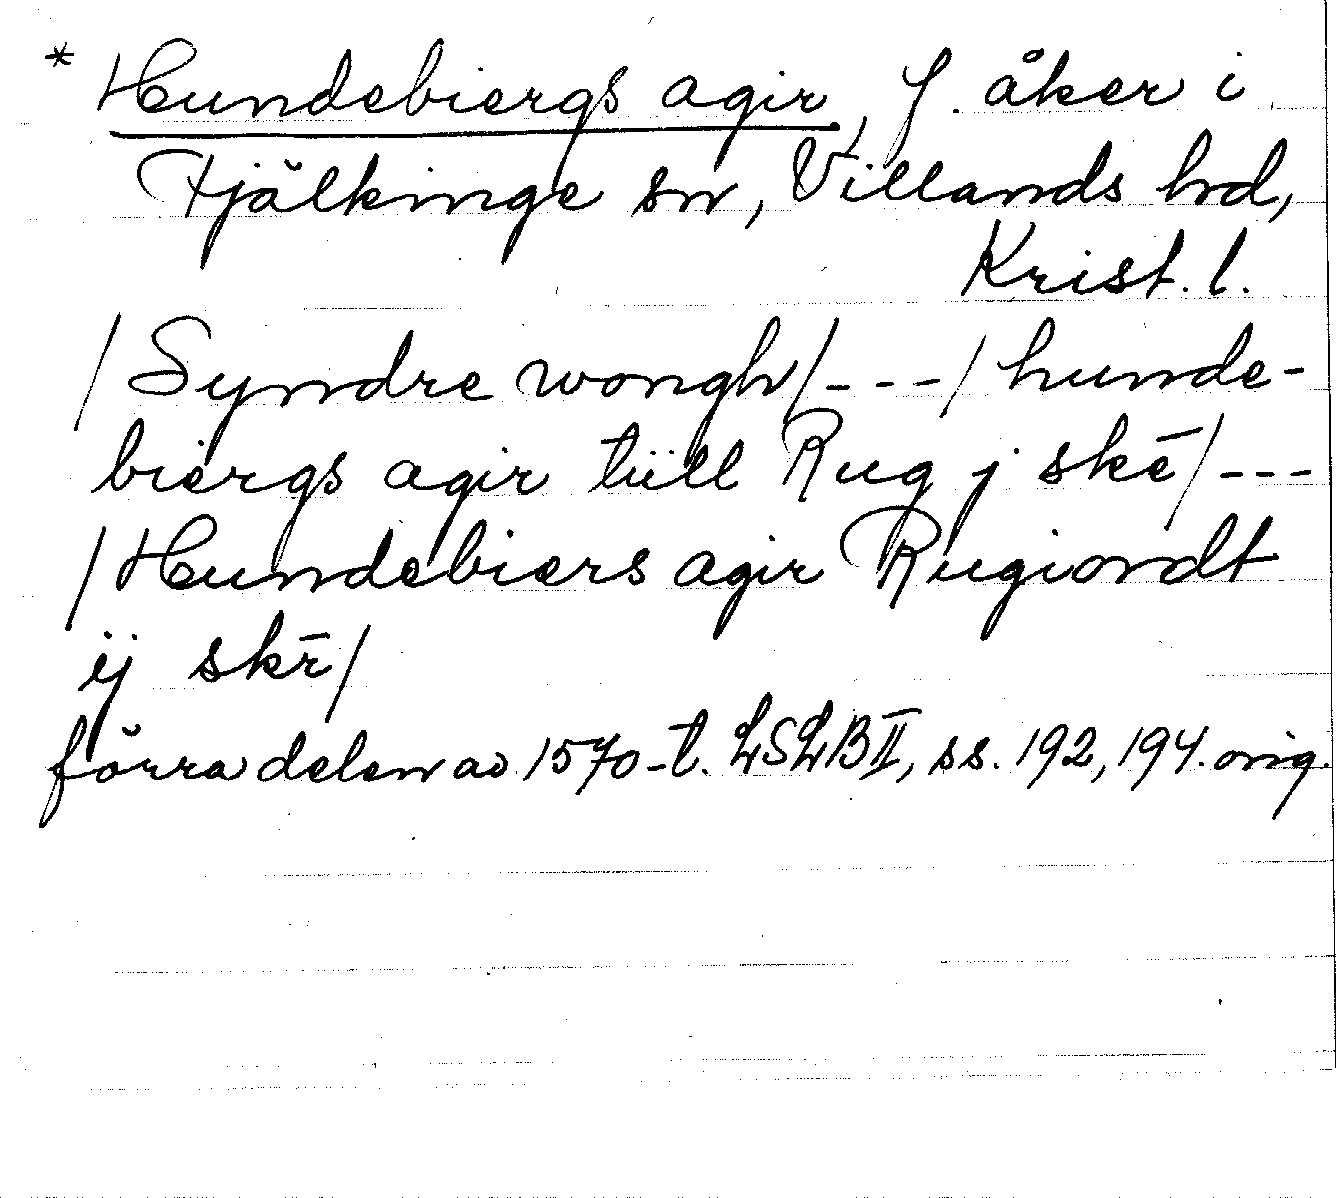 * Hundebiergs agir, f. åker i
Fjälkinge sn, Villands hd,
Krist. l.
/Syndre wongh/---/hunde-
biergs agir tüll Rug j skē/---
/Hundebiers agir Rugiondt
ij skr̄/
förra delen av 1570-t. LSLB II, ss. 192, 194. orig.